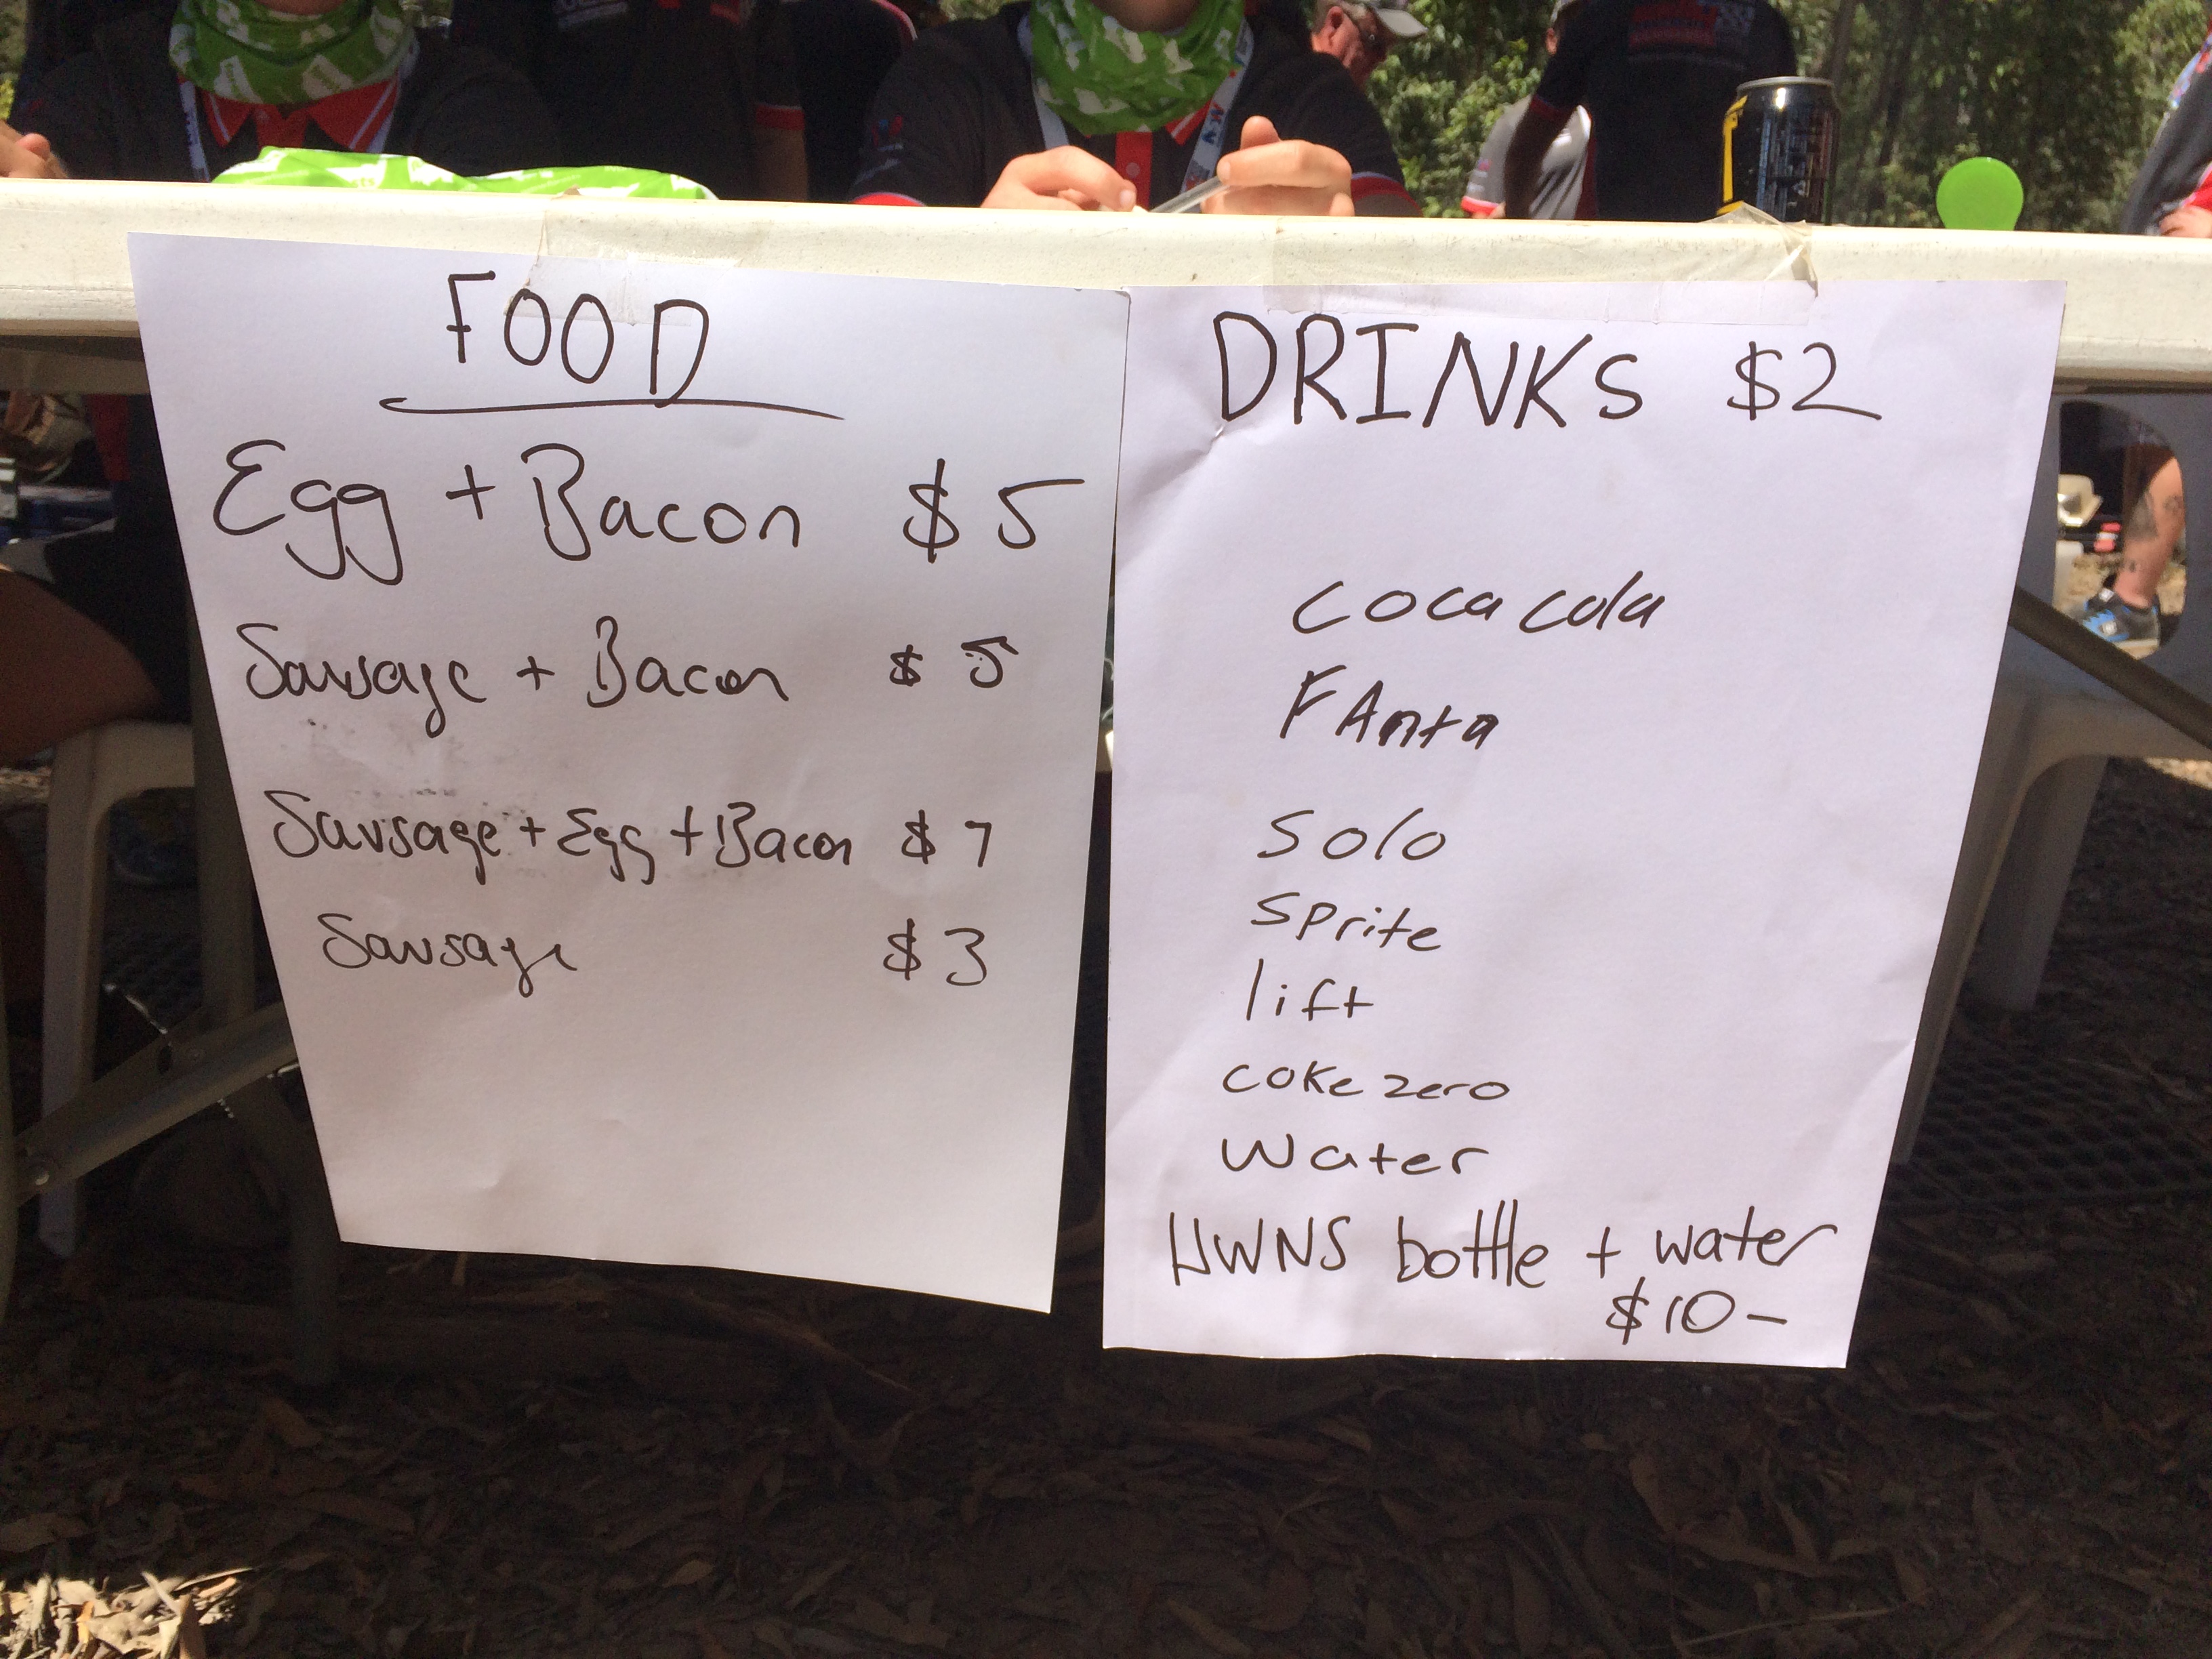 FOOD
Egg + Bacon $5
Sausage + Bacon $5
Sausage + Egg + Bacon $7
Sausage $3
DRINKS $2
coca cola
FAnta
solo
sprite
lift
coke zero
water
HWNS bottle + water
$10-